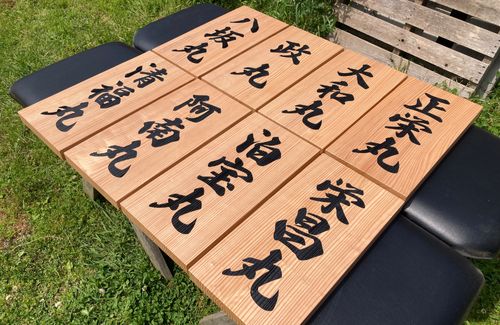 八坂丸
政丸
大和丸
正栄丸
清福丸
阿南丸
泊宝丸
栄昌丸